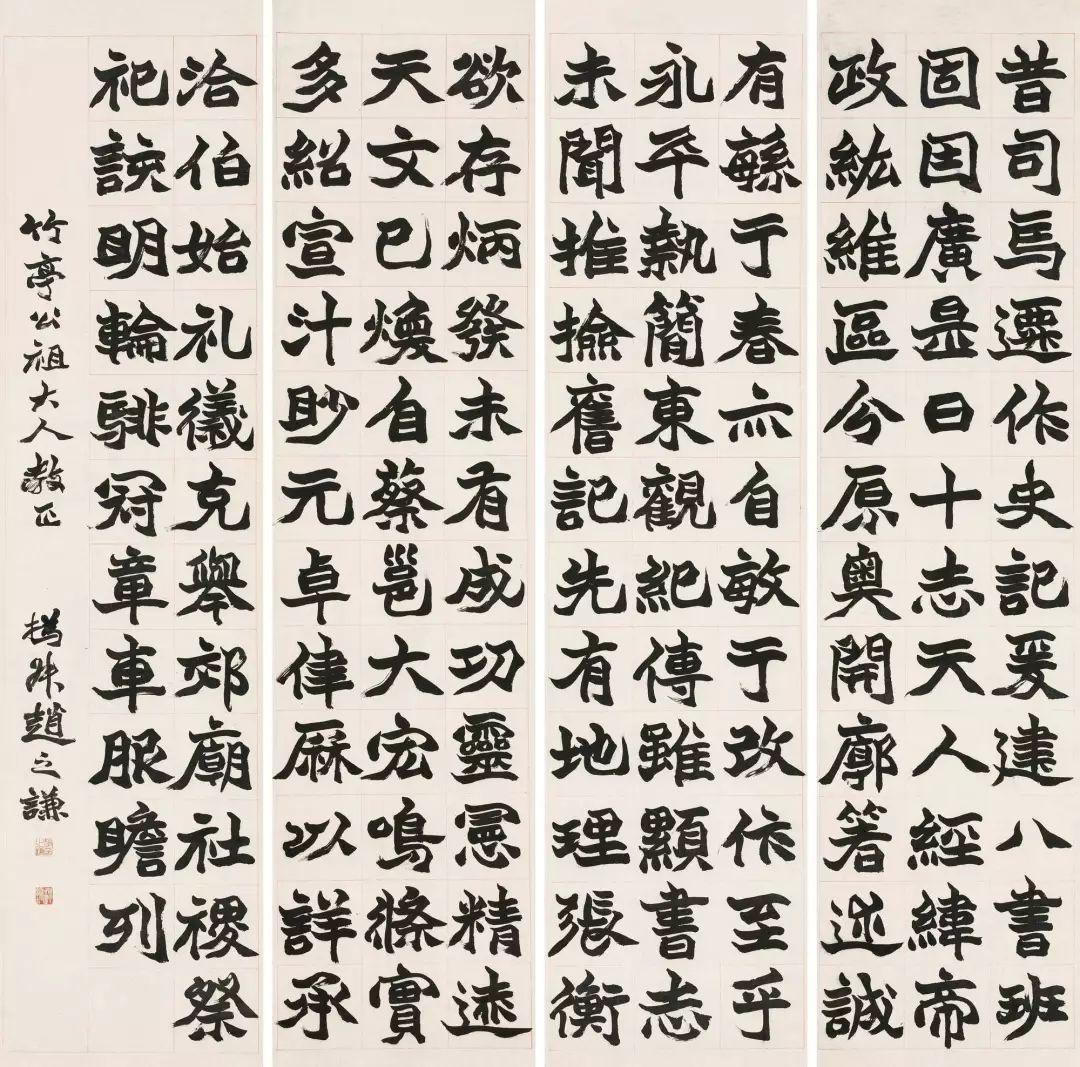 昔司馬遷作史記爰建八書班
固因廣是曰十志天人經緯帝
政紘維區分原奧開廓箸述誠
有繇于春亦自敏于改作至乎
永平執簡東觀紀傳雖顯書志
未聞推撿舊記先有地理張衡
欲存炳發未有成功靈憲精逺
天文已煥自蔡邕大宏鳴條實
多紹宣汁眇元卓律厤以詳承
洽伯始礼儀克舉郊廟社稷祭
祀該明輪騑冠章車服瞻列
竹亭公祖大人教正 撝叔趙之謙